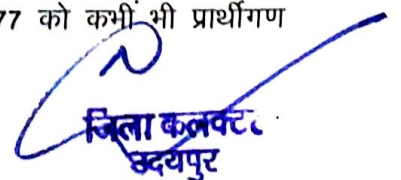 77 को कभी भी प्रार्थीगण
जिला कलक्टर
उदयपुर